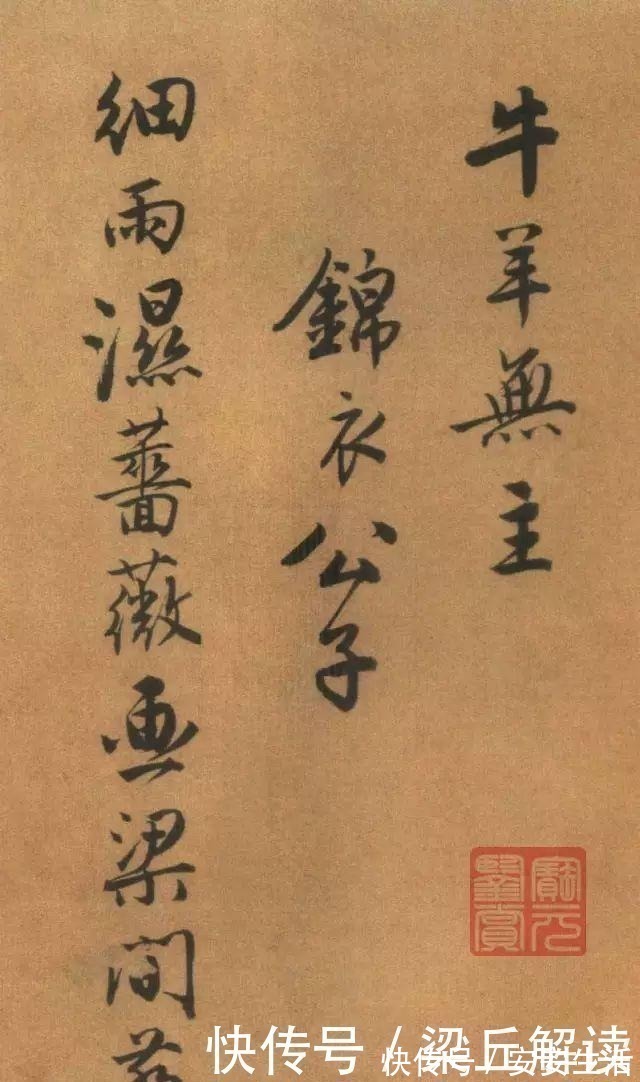 牛羊無主
錦衣公子
細雨濕薔薇画梁間
快传号 / 梁丘解读
快传号 /